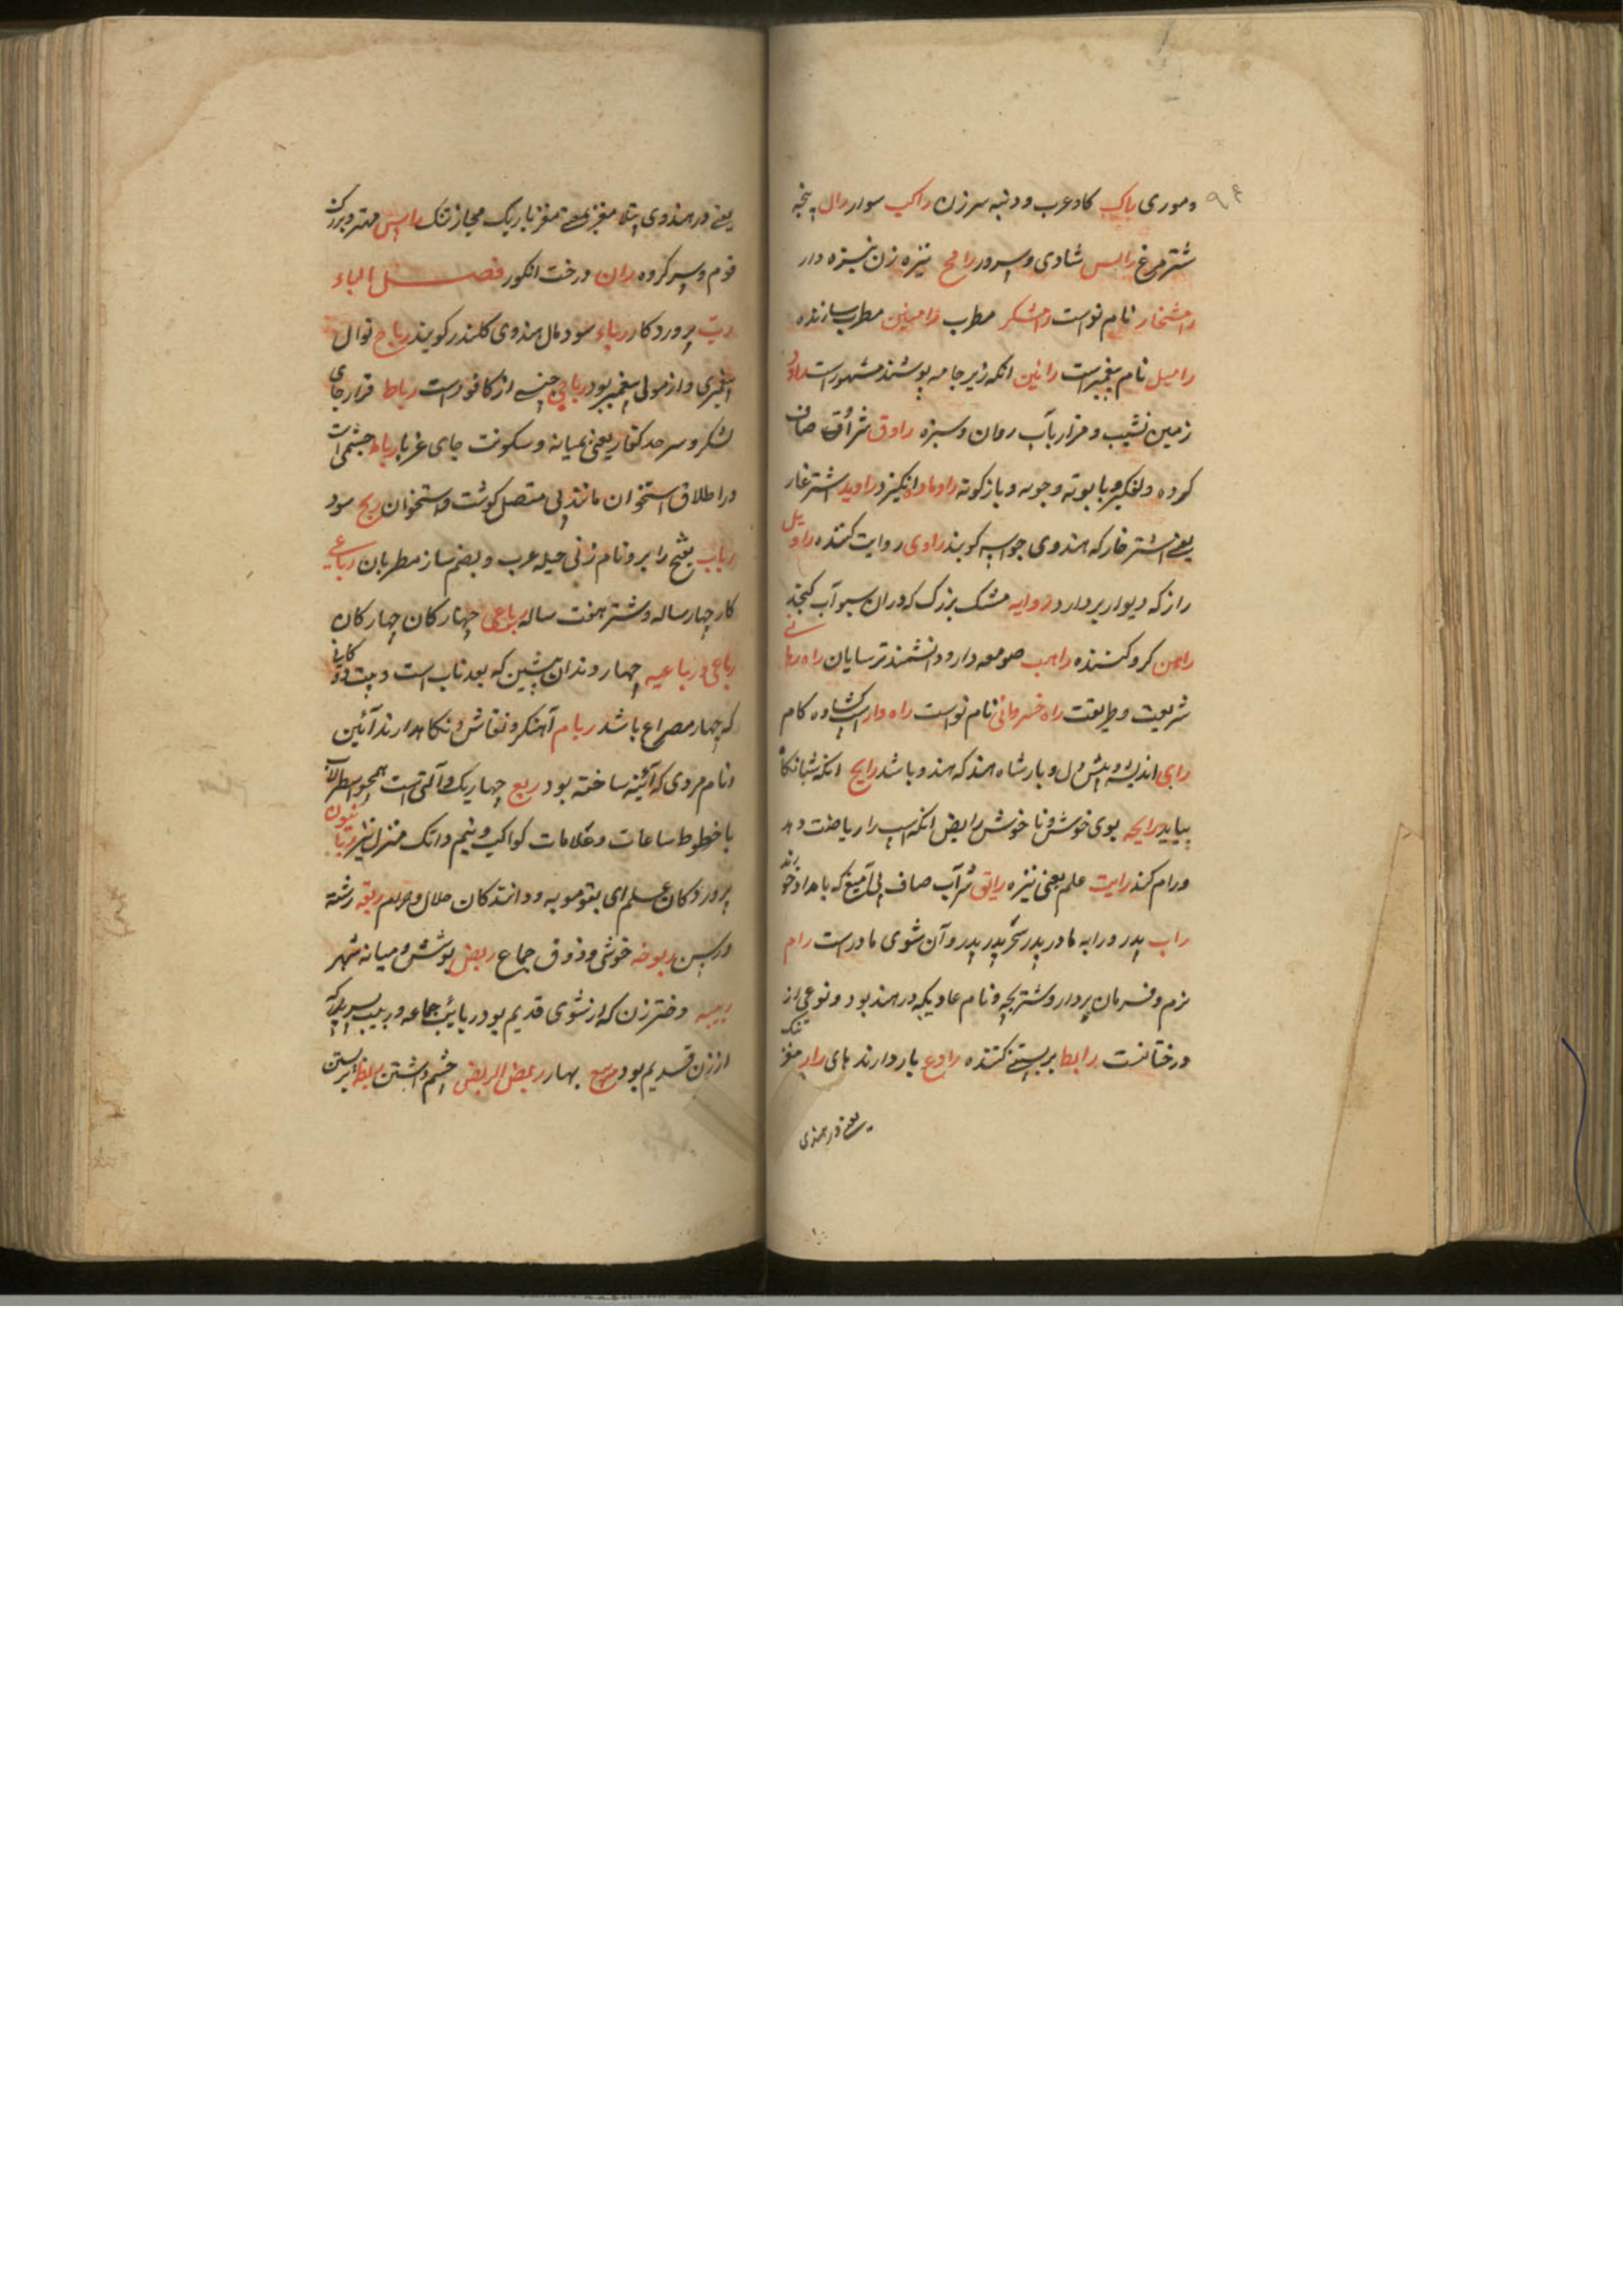 و موری راکب کاد عرب و دنبه سرزن راکب سوار رال پنجه
شترمرغ رابس شادی و سرور رامح نیزه زن نیزه دار
رامشخار نام نواست رامشگر مطرب رامنین مطرب سازنده
رامیل نام پیغمبر است رانین انکه زیر جامه پوشند مشهور است راود
زمین نشیب و فراز باآب روان و سبزه راوق شراب صاف
کرده و لفکیر و با بوته و جوبه و بازکونه راوماده انکیزد راوید اشترغار
یعنی اشترخار که هندوی جواسه کویند راوی روایت کننده راویل
راز که دیوار بردارد راویه مشک بزرک که دران سبو آب کنجد
راهن کرو کننده راهب صومعه دار و دانشمند ترسایان راه رهانی
شریعت و طریقت راه خسروانی نام نواست راه وار اسب کشاده کام
رای اندیشه و بینش دل و بادشاه هند که هندو باشد رایح انکه شبانکاه
بیاید رایحه بوی خوش و نا خوش رایض انکه اسب را ریاضت دهد
و رام کند رایت علم یعنی نیزه رایق شراب صاف بی آمیغ که بامداد خورند
راب پدر و رابه مادر پدر پدر و آن شوی مادرست رام
نرم و فرمان بردار و شتربچه و نام عادیکه در هند بود و نوعی از
درختانست رابط بر بستنی کننده رادع بازدارنده رار مغز تنک
یعنی در هندی
یعنی در هندوی پتلا مغز یعنی مغز باریک مجاز تنک رایس مهتر و بزرک
قوم و سر کروه ران درخت انکور فصل الباء
رب پرورد کار رباء سود مال هندوی کلندر کویند رباح نوال
پیغمبری و از مولی پیغمبر بود رباحی جنسی از کافورست رباط قرار جای
لشکر و سرحد کفار یعنی میانه و سکونت جای غربا رباط چشمی است
در اطلاق استخوان مانند پی متصل کوشت و استخوان ربح سود
رباب بفتح را برو نام زنی حیله عرب و بضم ساز مطربان رباعی
کار چهار ساله و شتر هفت ساله رباعی چهار کان چهار کان
رباعی و رباعیه چهار دندان پیشین که بعد ناب است و بیت دوکانی
که چهار مصراع باشد ربام آهنکر و نقاش و نکاهدارند آئین
و نام مردی که آئینه ساخته بود ربع چهار یک و آلتی است همچو اسطرلاب
با خطوط ساعات و علامات کواکب و نیم دانک منزل نیز ربانیون
پرورد کان علم ای بقومو به و دانند کان حلال و حرام ربقه رشته
ورسن ربوخه خوشی و ذوق جماع ربض پوشش و میانه شهر
ربیبه دختر زن که از شوی قدیم بود ربایث جماعه و ربیب پسر که
از زن قدیم بود ربیع بهار ربض الربض خشم داشتن ربط بستن